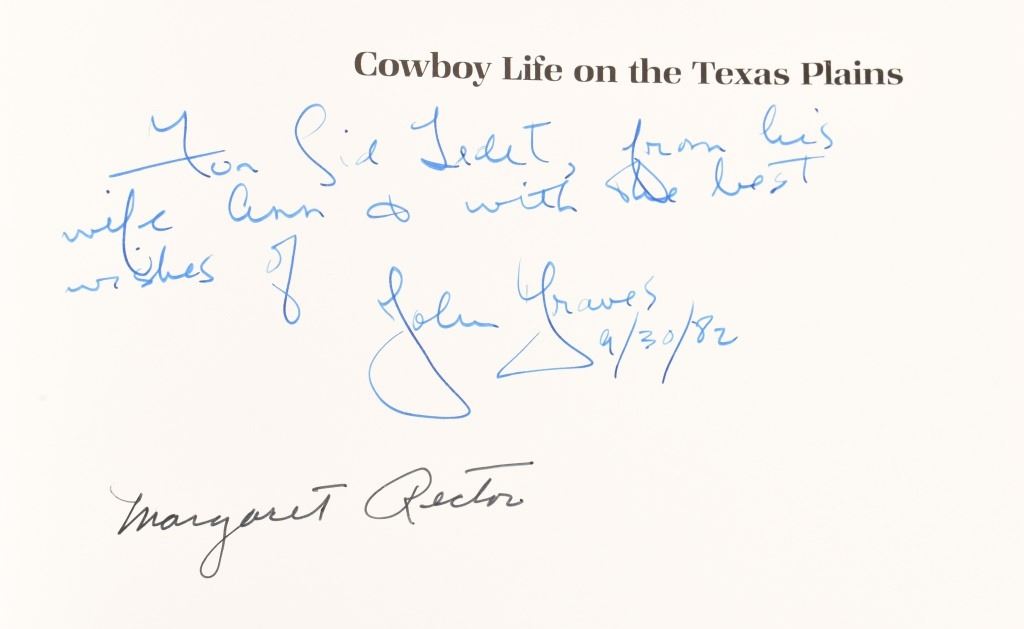 Cowboy Life on the Texas Plains
For Sid Ledet, from his
wife Ann & with the best
wishes of
John Graves
9/30/82
Margaret Rector